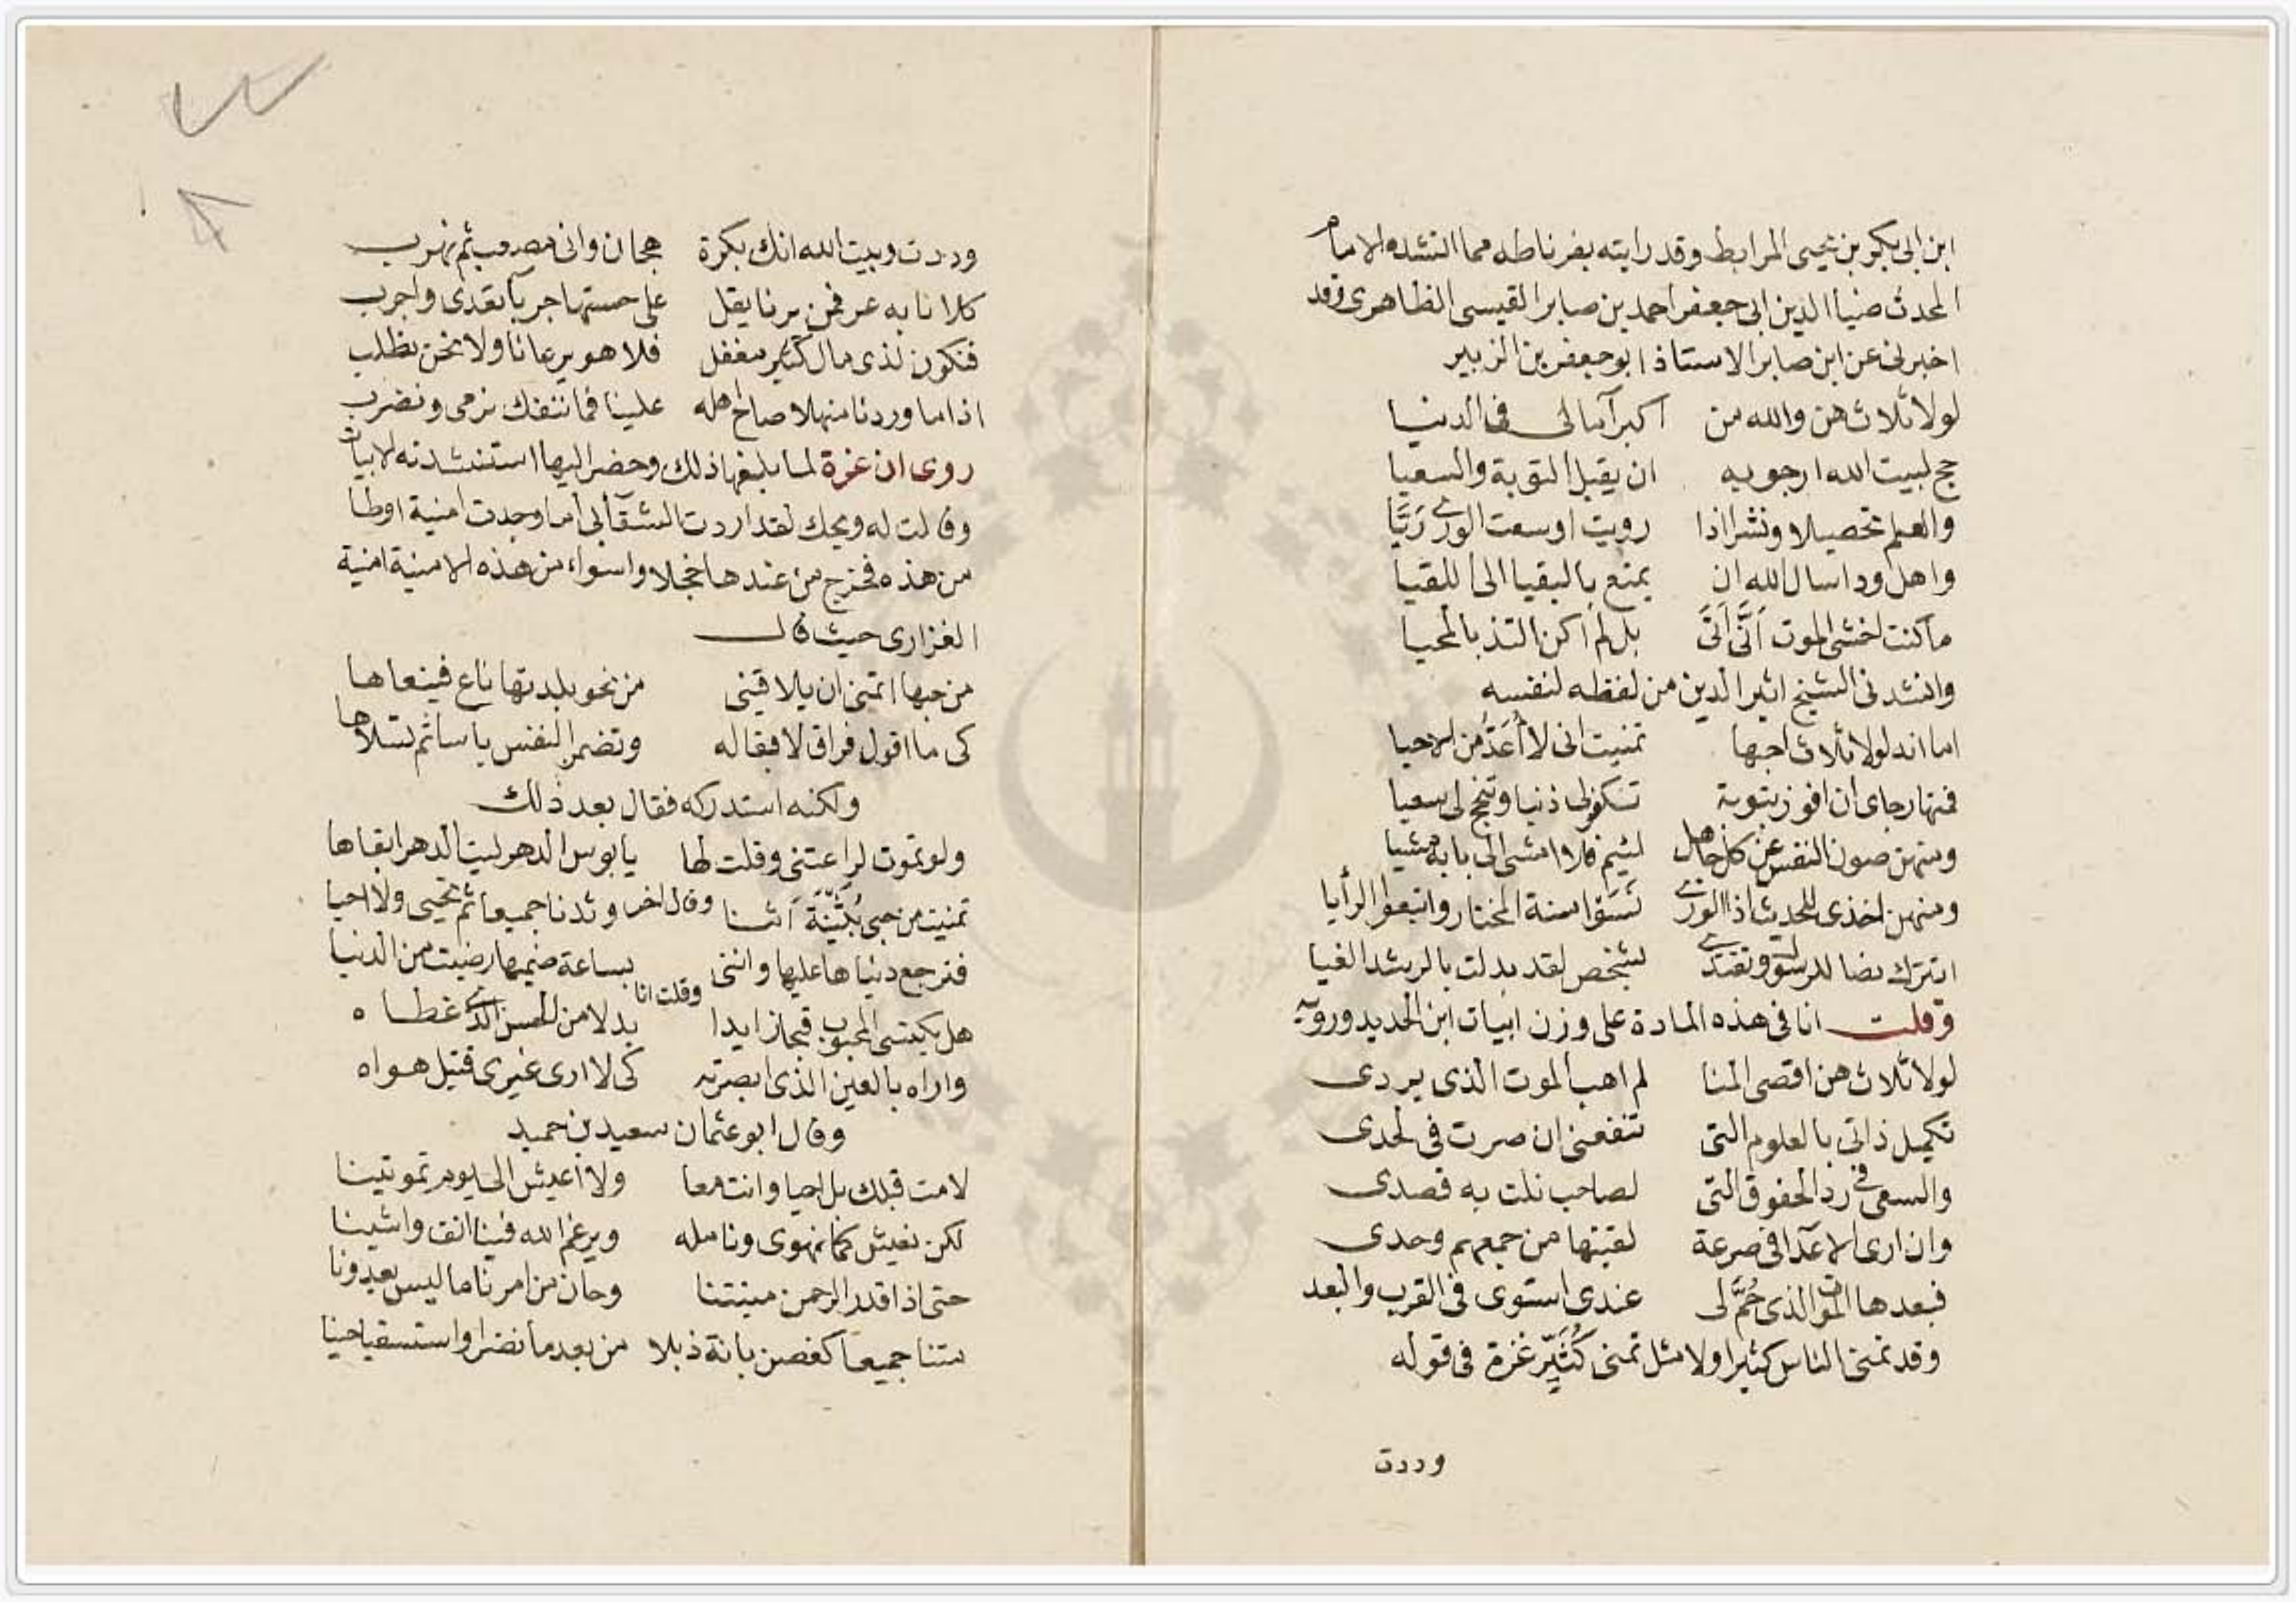 ابن ابى بكر بن يحيى المرابط وقد رايته بغرناطه مما انشده الامام
المحدث ضياا الدين ابى جعفر احمد بن صابر القيسى الظاهرى وقد
اخبرنى عن ابن صابر الاستاذ ابو جعفر بن الزبير
لولا ثلاث هن والله من اكبر آمالى فى الدنيا
حج لبيت الله ارجو به ان يقبل التوبة والسعيا
والعلم تحصيلا ونشرا اذا رويت اوسعت الورى رَيَّا
واهل ود اسال الله ان يمتع بالبقيا الى اللقيا
ما كنت اخشى الموت اَنَّى اَتَى بل لم اكن التذ بالمحيا
وانشدنى الشيخ اثير الدين من لفظه لنفسه
اما انه لولا ثلاث احبها تمنيت انى لا أُعَدُّ من الاحيا
فمنها رجاى ان افوز بتوبة تكفر لى ذنبا وتنجح لى سعيا
ومنهن صون النفس عن كل جاهل لئيم فلا امشى الى بابه مشيا
ومنهن اخذى للحديث اذا الورى نَسَوا سنة المختار واتبعوا الرأيا
اتترك نصا للرسول وتقتدى بشخص لقد بدلت بالرشد الغيا
وقلت انا فى هذه المادة على وزن ابيات ابن الحديد ورويه
لولا ثلاث هن اقصى المنا لم اهب الموت الذى يردى
تكميل ذاتى بالعلوم التى تنفعنى ان صرت فى لحدى
والسعى فى رد الحقوق التى لصاحب نلت به قصدى
وان ارى الاعدا فى صرعة لقيتها من جمعهم وحدى
فبعدها الموت الذى حُمَّ لى عندى استوى فى القرب والبعد
وقد تمنى الناس كثيرا ولا مثل تمنى كُثَيِّر عزة فى قوله
وددت
وددت وبيت الله انك بكرة هجان وانى مصعب ثم نهرب
كلانا به عر فمن يرنا يقل على حسنها جربآ تعدى واجرب
فنكون لذى مال كثير مغفل فلا هو يرعانا ولا نحن نطلب
اذا ما وردنا منهلا صاح اهله علينا فما ننفك نرمى ونضرب
روى ان عزة لما بلغها ذلك وحضر اليها استنشدته الابيات
وقالت له ويحك لقد اردت الشقآ لى اما وجدت امنية اوطا
من هذه فخرج من عندها خجلا واسواء من هذه الامنية امنية
الفزارى حيث قال
من حبها اتمنى ان يلاقينى من نحو بلدتها ناع فينعاها
كى ما اقول فراق لا لقا له وتضمر النفس ياسا ثم تسلاها
ولكنه استدركه فقال بعد ذلك
ولو تموت لراعتنى وقلت لها يا بوس الدهر ليت الدهر ابقاها
وقال اخر
تمنيت من حبى بُثَيْنَةَ اَننا وئدنا جميعا ثم تحيى ولا احيا
فترجع دنياها عليها واننى بساعة ضميها رضيت من الدنيا
وقلت انا
هل يكتسى المحبوب قبحا زايدا بدلا من الحسن الذى غطاه
واراه بالعين الذى ابصرته كى لا ارى غيرى قتيل هواه
وقال ابو عثمان سعيد بن حميد
لا مت قبلك بل احيا وانت معا ولا اعيش الى يوم تموتينا
لكن نعيش كما نهوى ونامله ويرغم الله فينا انف واشينا
حتى اذا قدر الرحمن ميتتنا وحان من امرنا ما ليس يعدونا
متنا جميعا كغصن بانة ذبلا من بعد ما نضرا واستسقيا حينا